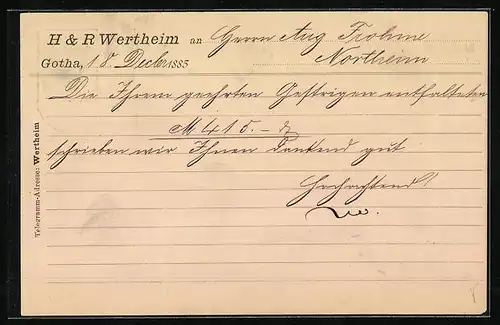 H & R Wertheim an Herrn Aug Frohme
Gotha, 18. Decbr 1885 Northeim
Die Ihrem geehrten Gestrigen entfallenden
M 415.-
schrieben wir Ihnen dankend gut
Hochachtend!
Telegramm-Adresse: Wertheim